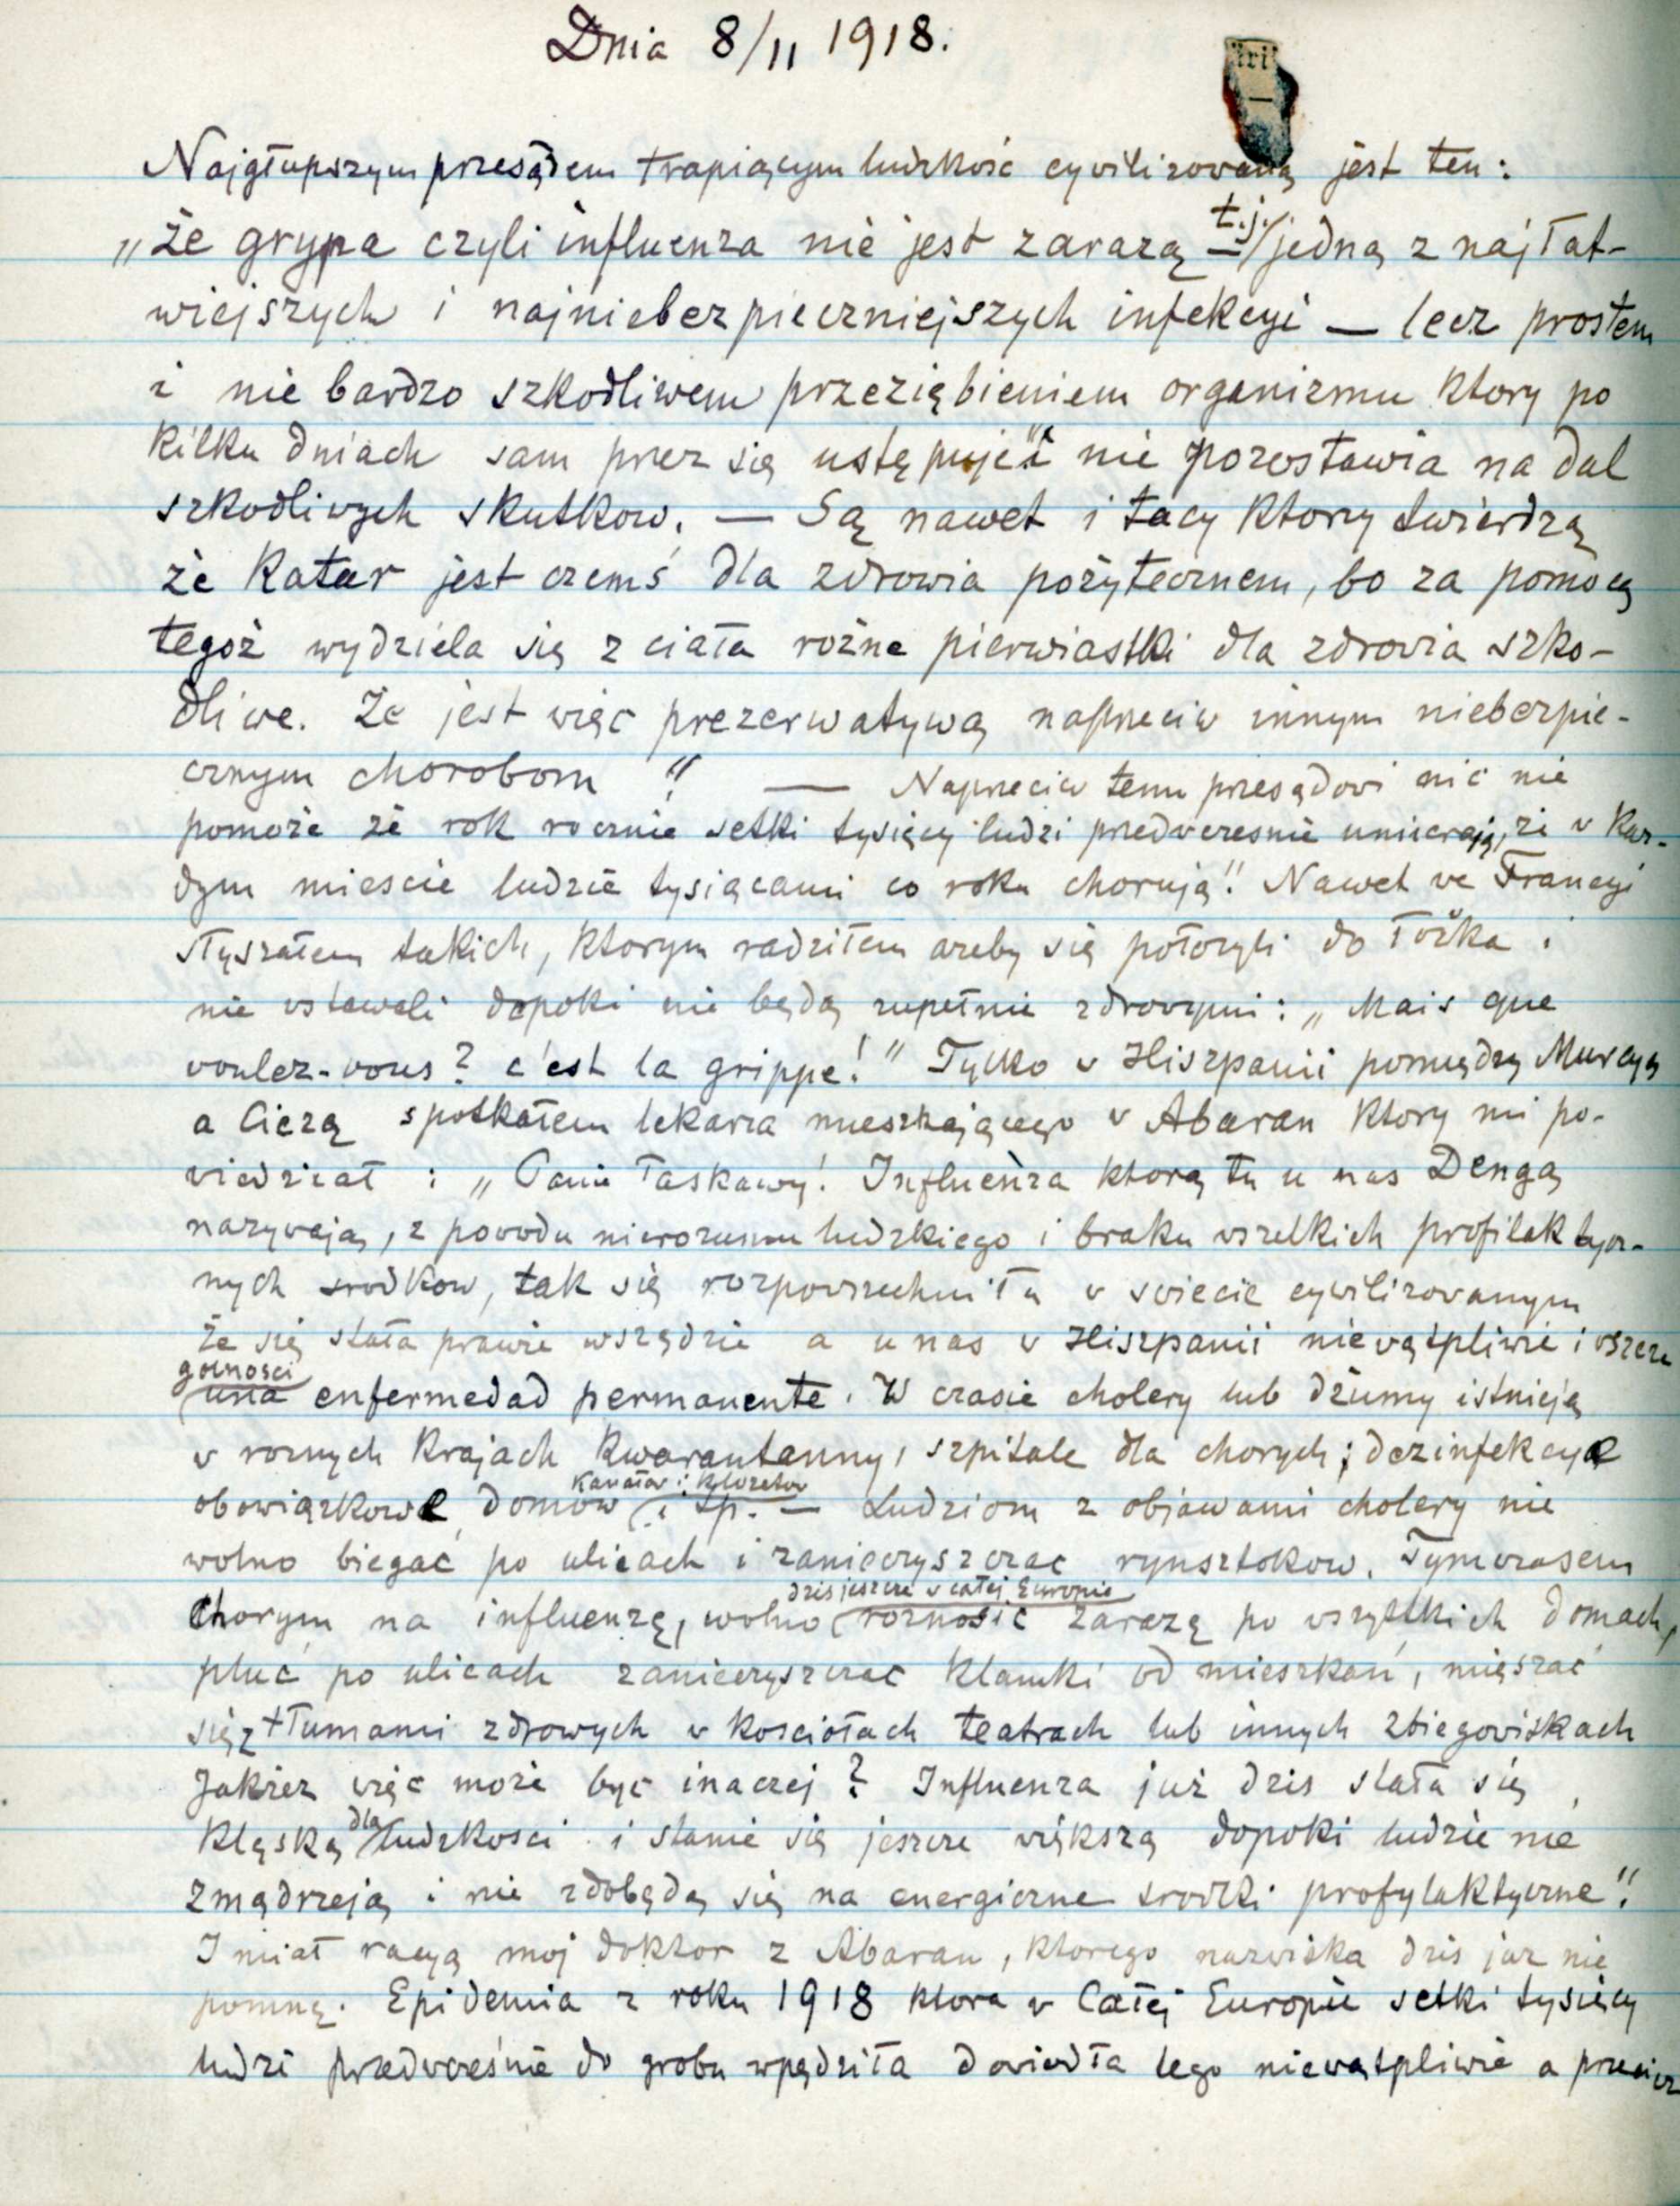 Dnia 8/11 1918.
Najgłupszym przesądem trapiącym ludzkość cywilizowaną jest ten:
„Że grypa czyli influenza nie jest zarazą – t.j. jedną z najłat-
wiejszych i najniebezpieczniejszych infekcyi — lecz prostem
i nie bardzo szkodliwem przeziębieniem organizmu ktory po
kilku dniach sam przez się ustępuje i nie pozostawia na dal
szkodliwych skutkow. — Są nawet i tacy ktorzy twierdzą
że Katar jest czemś dla zdrowia pożytecznem, bo za pomocą
tegoż wydziela się z ciała rożne pierwiastki dla zdrowia szko-
dliwe. Że jest więc prezerwatywą naprzeciw innym niebezpie-
cznym chorobom" — Naprzeciw temu przesądowi nic nie
pomoże że rok rocznie setki tysięcy ludzi przedwczesnie umierają, że w kaz-
dym miescie ludzie tysiącami co roku chorują!! Nawet we Francyi
słyszałem takich, ktorym radziłem azeby się położyli do łóżka i
nie wstawali dopoki nie będą zupełnie zdrowymi: „Mais que
voulez-vous? c'est la grippe!" Tylko w Hiszpanii pomiędzy Murcyą
a Ciezą spotkałem lekarza mieszkającego w Abaran ktory mi po-
wiedział: „Panie łaskawy! Influenza ktorą tu u nas Dengą
nazywają, z powodu nierozumu ludzkiego i braku wszelkich profilaktycz-
nych srodkow, tak się rozpowszechniła w swiecie cywilizowanym
że się stała prawie wszędzie a u nas w Hiszpanii niewątpliwie i wszcze
golnosci una enfermedad permanente. W czasie cholery lub dżumy istnieją
w roznych Krajach kwarantanny, szpitale dla chorych; dezinfekcye
obowiązkowe domow kanałow i klozetow i tp. — Ludziom z objawami cholery nie
wolno biegać po ulicach i zanieczyszczac rynsztokow. Tymczasem
chorym na influenzę, wolno dzis jeszcze w całej Europie roznosić zarazę po wszystkich domach,
pluć po ulicach zanieczyszczac klamki od mieszkań, mięszać
się z tłumami zdrowych w kosciołach teatrach lub innych zbiegowiskach
Jakżez więc może być inaczej? Influenza już dzis stała się
klęską dla ludzkosci i stanie się jeszcze większą dopoki ludzie nie
zmądrzeją i nie zdobędą się na energiczne srodki profylaktyczne"!
I miał racyą moj doktor z Abaran, ktorego nazwiska dzis już nie
pomnę. Epidemia z roku 1918 ktora w Całej Europie setki tysięcy
ludzi przedwcześnie do grobu wpędziła dowiodła tego niewątpliwie a przeciez